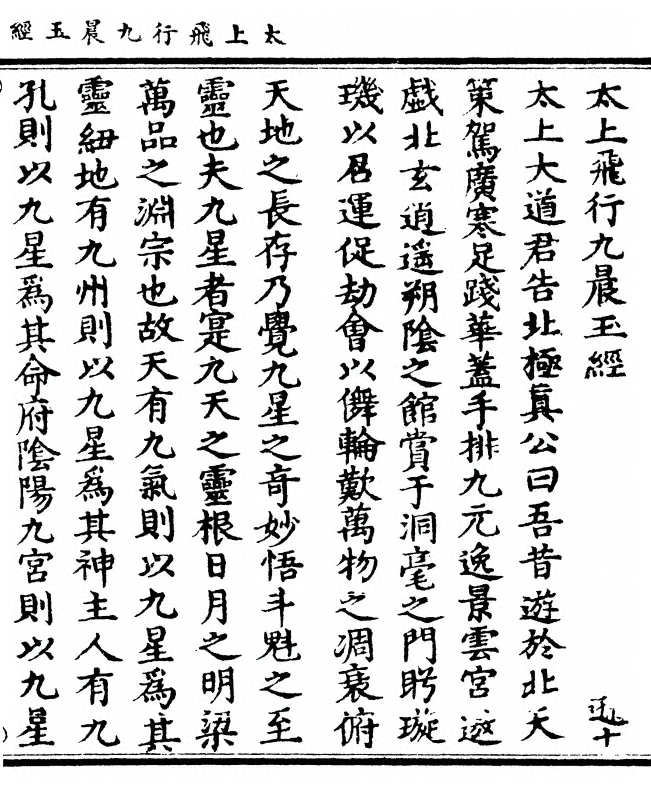 太上飛行九晨玉經
太上飛行九晨玉經 十
太上大道君告北極真公曰吾昔遊於北天
策駕廣寒足踐華蓋手排九元逸景雲宮遨
戯北玄逍遥朔陰之館賞于洞毫之門眄璇
璣以召運促劫會以儛輪歎萬物之凋衰俯
天地之長存乃覺九星之奇妙悟斗魁之至
靈也夫九星者寔九天之靈根日月之明梁
萬品之淵宗也故天有九氣則以九星爲其
靈紐地有九州則以九星爲其神主人有九
孔則以九星爲其命府陰陽九宮則以九星